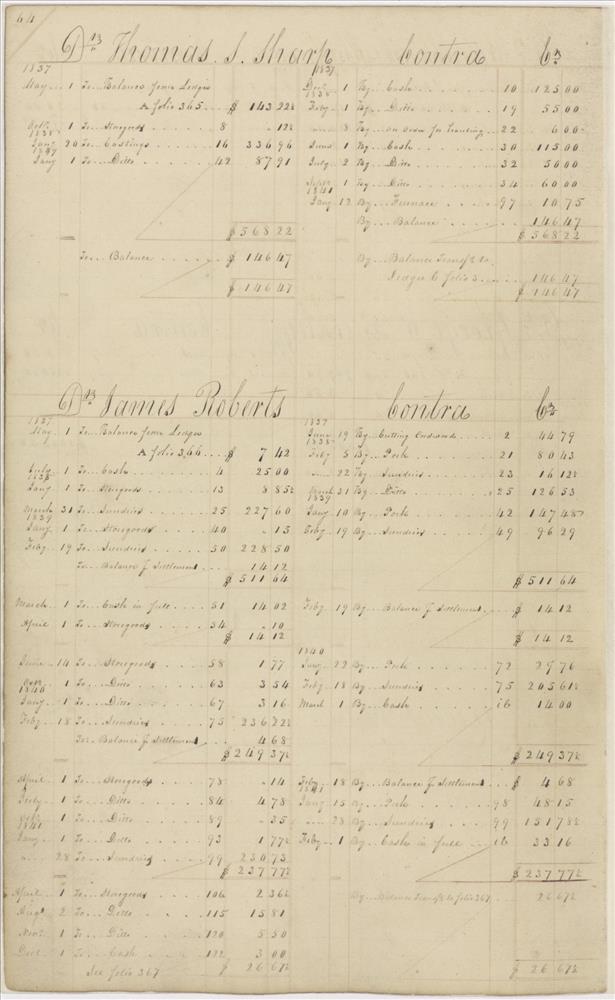 64
Dr. Thomas. S. Sharp Contra Cr.
1837
May 1 To Balance from Ledger
A folio 365 $ 143 22½
Octr. 1 To Storegoods 8 12½
1838
Jany 20 To Castings 16 336 96
1839
Jany 1 To Ditto 42 87 91
$ 568 22
To Balance $ 146 47
$ 146 47
1837
Decr. 1 By Cash 10 125 00
1838
Feby 1 By Ditto 19 55 00
" 8 By an oven for 22 6 00
June 1 By Cash 30 115 00
July 2 By Ditto 32 50 00
Septr. 1 By Ditto 34 60 00
1841
Jany 12 By Furnace 97 10 75
By Balance 146 47
$ 568 22
By Balance Transfd. to
Ledger C folio 3 146 47
$ 146 47
Dr. James Roberts Contra Cr.
1837
May 1 To Balance from Ledger
A folio 366 $ 7 42
July 1 To Cash 4 25 00
1838
Jany 1 To Storegoods 13 8 85½
March 31 To Sundries 25 227 60
1839
Jany 1 To Storegoods 40 13
Feby 19 To Sundries 50 228 50
To Balance p Settlement 14 12
$ 511 64
March 1 To Cash in full 51 14 02
April 1 To Storegoods 54 10
$ 14 12
June 14 To Storegoods 58 1 77
Octr. 1 To Ditto 63 3 54
1840
Jany 1 To Ditto 67 3 16
Feby 18 To Sundries 75 236 22½
To Balance p Settlement 4 68
$ 249 37½
April 1 To Storegoods 78 14
July 1 To Ditto 84 4 78
Octr. 1 To Ditto 89 35
1841
Jany 1 To Ditto 93 1 77½
" 28 To Sundries 99 230 73
$ 237 77½
April 1 To Storegoods 106 2 36½
Augt. 2 To Ditto 115 15 81
Novr. 1 To Ditto 120 5 50
Decr. 1 To Cash 122 3 00
See folio 367 $ 26 67½
1837
June 19 By Cutting Cordwood 2 44 79
1838
Feby 5 By Pork 21 80 43
" 22 By Sundries 23 16 12½
March 31 By Ditto 25 126 53
1839
Jany 10 By Pork 42 147 48
Feby 19 By Sundries 49 96 29
$ 511 64
Feby 19 By Balance p Settlement $ 14 12
$ 14 12
1840
Jany 22 By Pork 72 29 76
Feby 18 By Sundries 75 205 61½
March 1 By Cash 76 14 00
$ 249 37½
Feby 18 By Balance p Settlement $ 4 68
1841
Jany 15 By Pork 98 48 15
" 28 By Sundries 99 151 78½
Feby 1 By Cash in full 33 16
$ 237 77½
By Balance Transfd. to folio 367 26 67½
$ 26 67½